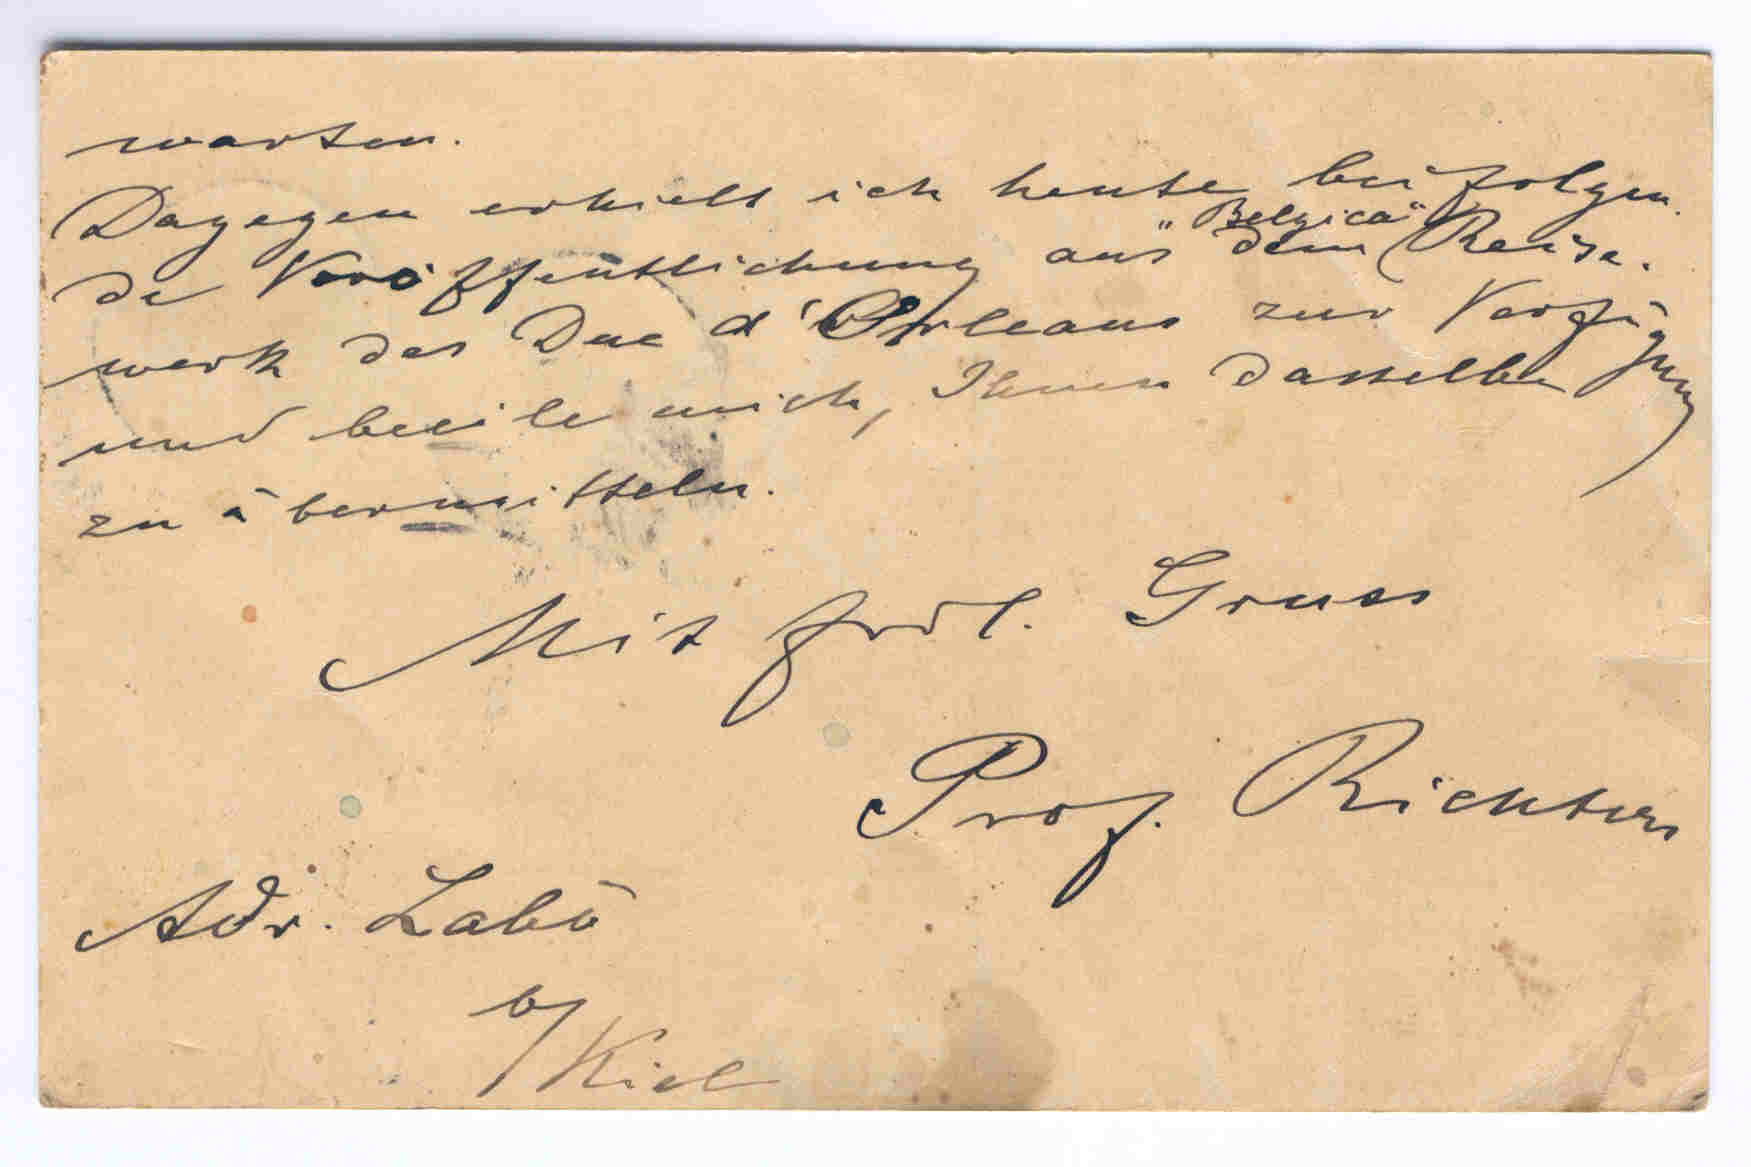 warten.
Dagegen erhielt ich heute beifolgen-
de Veröffentlichung aus dem "Belgica" Reise-
werk des Duc d'Orleans zur Verfügung
und beeile mich, Ihnen dasselbe
zu übermitteln.
Mit frdl. Gruss
Prof. Richters
Adr. Labö
b/Kiel